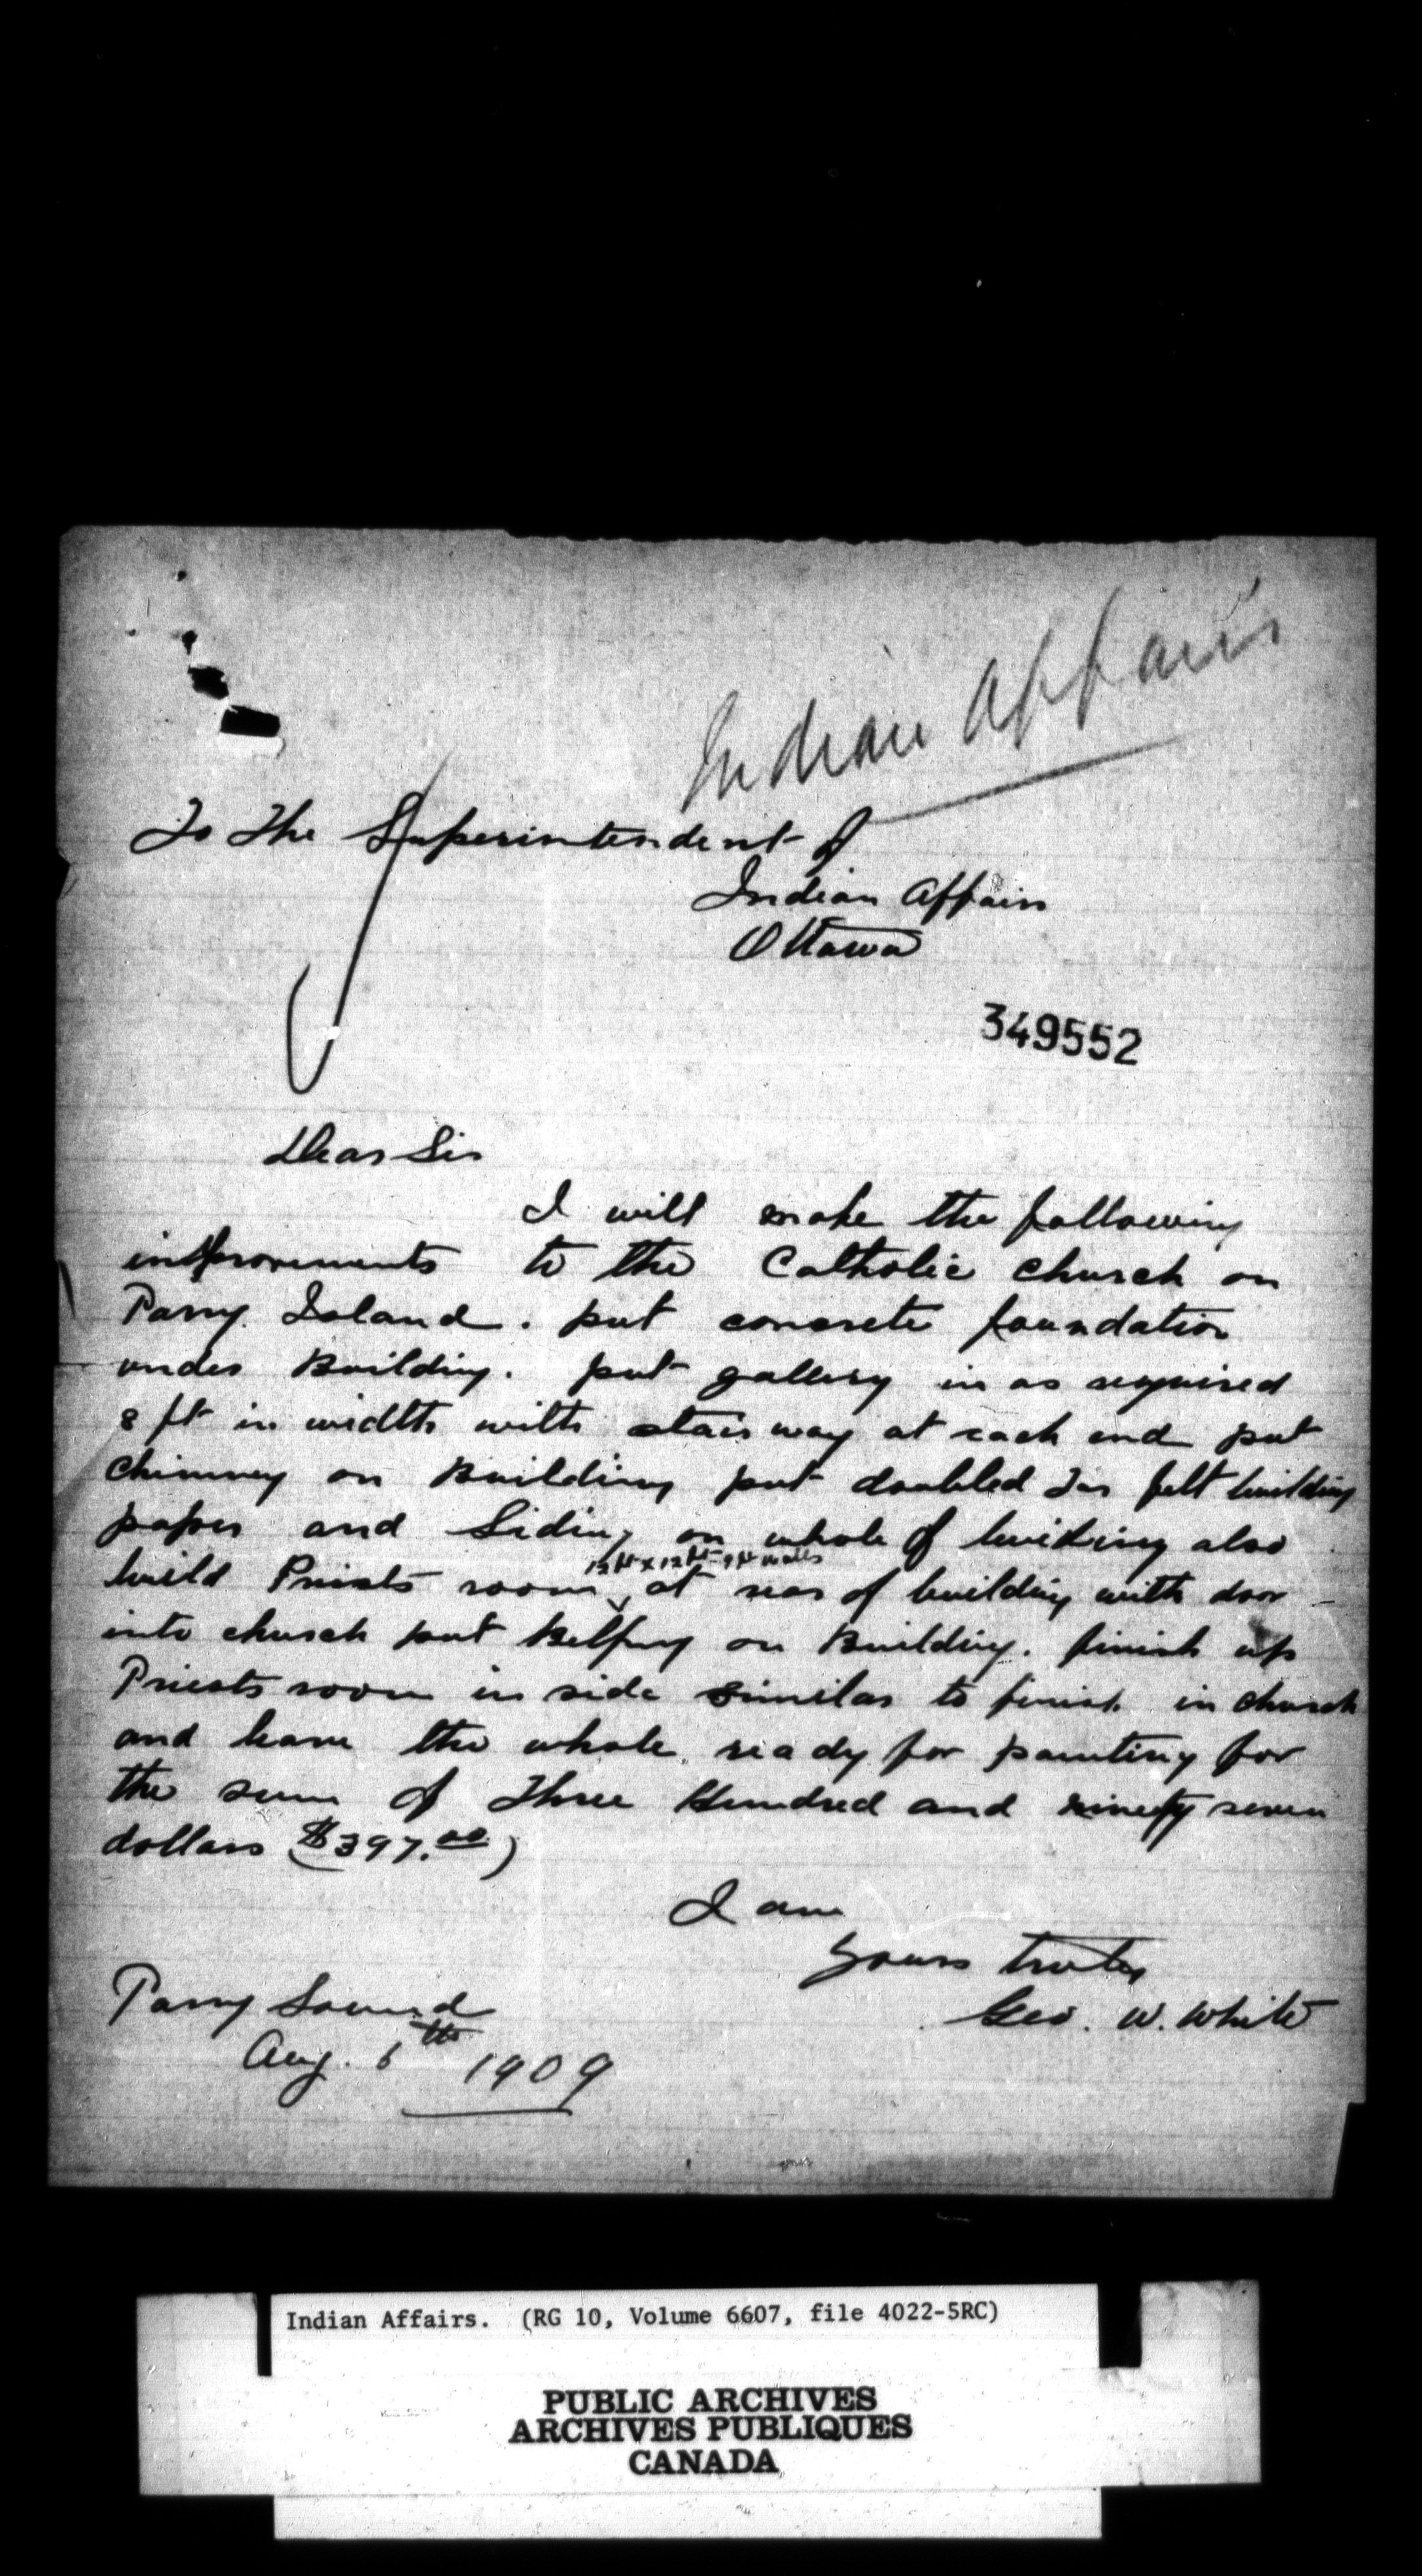 Indian Affairs
To The Superintendent of
Indian Affairs
Ottawa
349552
Dear Sir
I will make the following
improvements to the Catholic church on
Parry Island. put concrete foundation
under Building. put gallery in as required
8 ft in width with stairway at each end put
chimney on Building put doubled Tar felt building
paper and Siding on whole of building also
12 ft x 12 ft - 9 ft walls
build Priests room at rear of building with door
into church put Belfry on Building. finish up
Priests room in side similar to finish in church
and leave the whole ready for painting for
the sum of Three Hundred and ninety seven
dollars ($397.00)
I am
Yours truly
Geo. W. White
Parry Sound
Aug. 6th 1909
Indian Affairs. (RG 10, Volume 6607, file 4022-5RC)
PUBLIC ARCHIVES
ARCHIVES PUBLIQUES
CANADA